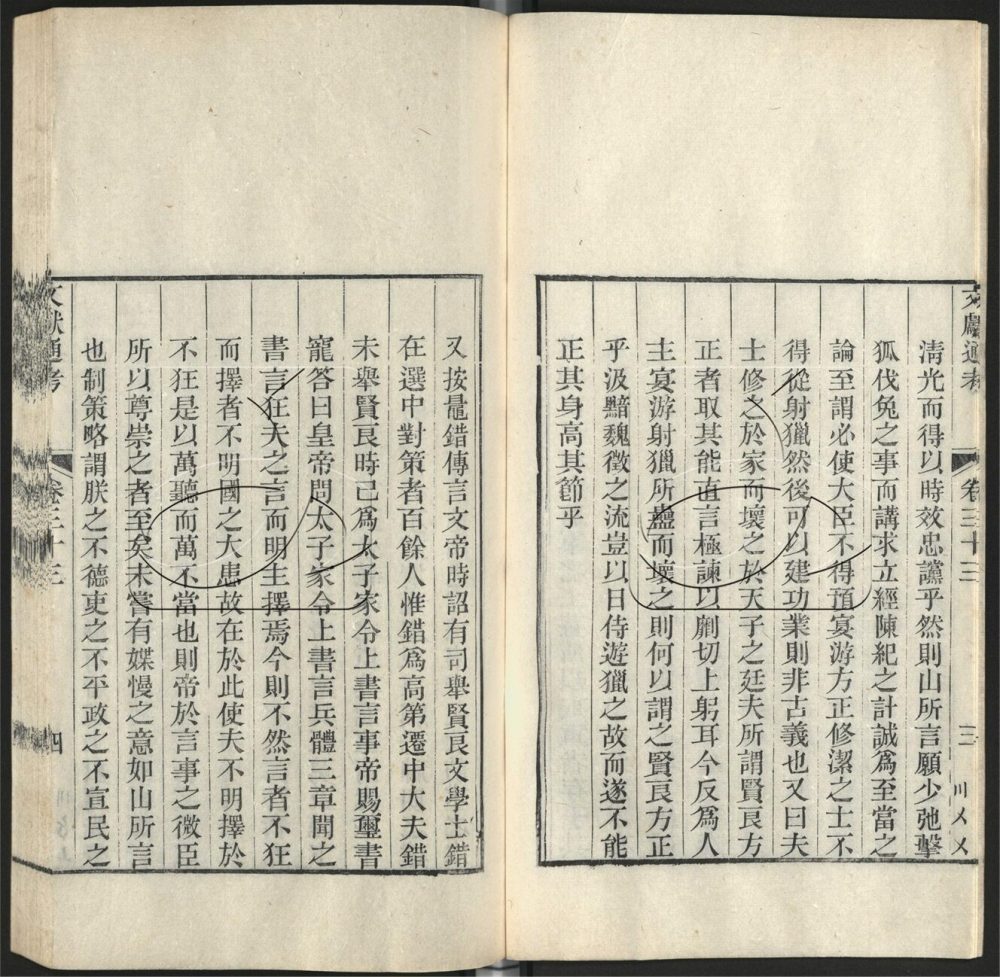 文獻通考 卷三十三 三 川〤〤
清光而得以時效忠讜乎然則山所言願少弛擊
狐伐兔之事而講求立經陳紀之計誠爲至當之
論至謂必使大臣不得預宴游方正修潔之士不
得從射獵然後可以建功業則非古義也又曰夫
士修之於家而壞之於天子之廷夫所謂賢良方
正者取其能直言極諫以剴切上躬耳今反爲人
主宴游射獵所蠱而壞之則何以謂之賢良方正
乎汲黯魏徵之流豈以日侍遊獵之故而遂不能
正其身高其節乎
又按鼂錯傳言文帝時詔有司舉賢良文學士錯
在選中對策者百餘人惟錯爲高第遷中大夫錯
未舉賢良時已爲太子家令上書言事帝賜璽書
寵答曰皇帝問太子家令上書言兵體三章聞之
書言狂夫之言而明主擇焉今則不然言者不狂
而擇者不明國之大患故在於此使夫不明擇於
不狂是以萬聽而萬不當也則帝於言事之微臣
所以尊崇之者至矣未嘗有媟慢之意如山所言
也制策略謂朕之不德吏之不平政之不宣民之
文獻通考 卷三十三 四